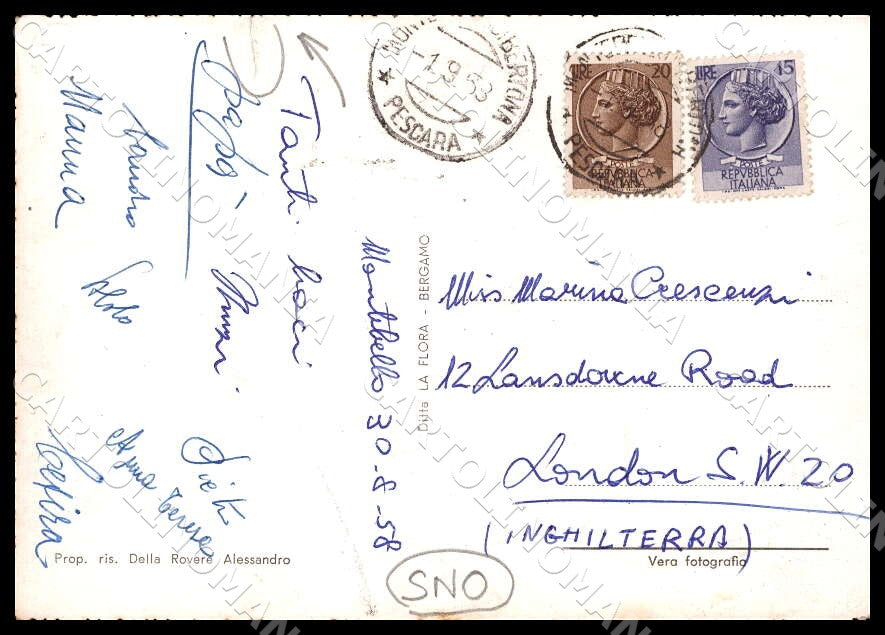 MONTEBELLO DI BERTONA
-1.9.58
★ PESCARA ★
LIRE 20
POSTE
REPVBBLICA
ITALIANA
LIRE 15
POSTE
REPVBBLICA
ITALIANA
Tanti baci
papà
Mamma
Sandro
Aldo
Anna Teresa
Montebello 30-8-58
Ditta LA FLORA - BERGAMO
Miss Marina Crescenzi
12 Lansdowne Road
London S.W. 20
(INGHILTERRA)
Prop. ris. Della Rovere Alessandro
Vera fotografia
SNO
CARTOLINOMANIA